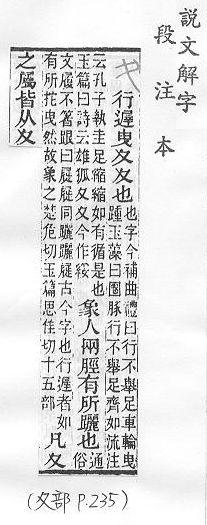 說文解字
段注本
夊 行遟曳夊夊也
也字今補曲禮曰行不舉足車輪曳
踵玉藻曰圈豚行不舉足齊如流注
云孔子執圭足縮縮如有循是也
玉篇曰詩云雄狐夊夊今作綏
象人兩脛有所躧也
通俗
文屨不箸跟曰屣屣同躧躧屣古今字也行遟者如
有所拕曳然故象之楚危切玉篇思佳切十五部
凡夊
之屬皆从夊
(夊部 P.235)